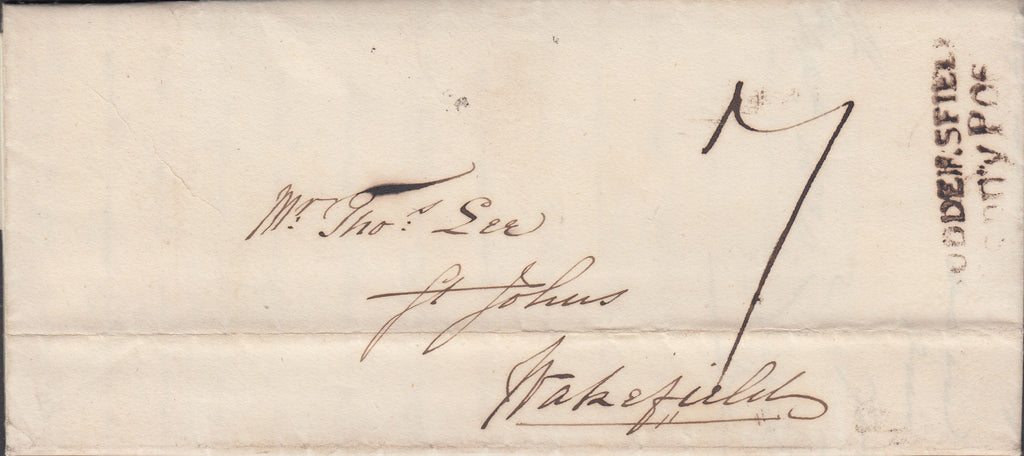 Mr. Thos. Lee
St Johns
Wakefield
7
UDDERSFIEL
TTY POS